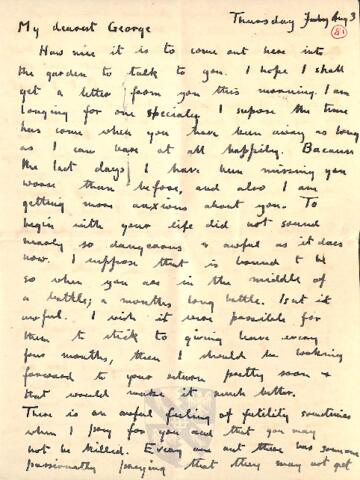 My dearest George
Thursday Aug 3
81
How nice it is to come out here into
the garden to talk to you. I hope I shall
get a letter from you this morning. I am
longing for one specialy I supose the time
has come when you have been away as long
as I can bare at all happily. Because
the last days I have been missing you
worse than before, and also I am
getting more anxious about you. To
begin with your life did not sound
nearly so dangerous & awful as it does
now. I suppose that is bound to be
so when you are in the middle of
a battle; a months long battle. Isnt it
awful. I wish it were possible for
them to stick to giving leave every
four months, then I should be looking
forward to your return pretty soon &
that would make it much better.
There is an awful feeling of futility sometimes
when I pray for you and that you may
not be killed. Every out there has someone
passionatly praying that they may not get